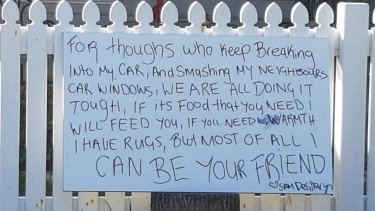 For thoughs who keep Breaking
Into My CAR, And Smashing MY NEIGHBOURS
CAR WINDOWS, WE ARE ALL DOING IT
TOUGH, IF its Food that you NEED I
WILL FEED YOU, IF YOU NEED WARMTH
I HAVE RUGS, But MOST OF ALL I
CAN BE YOUR FRIEND